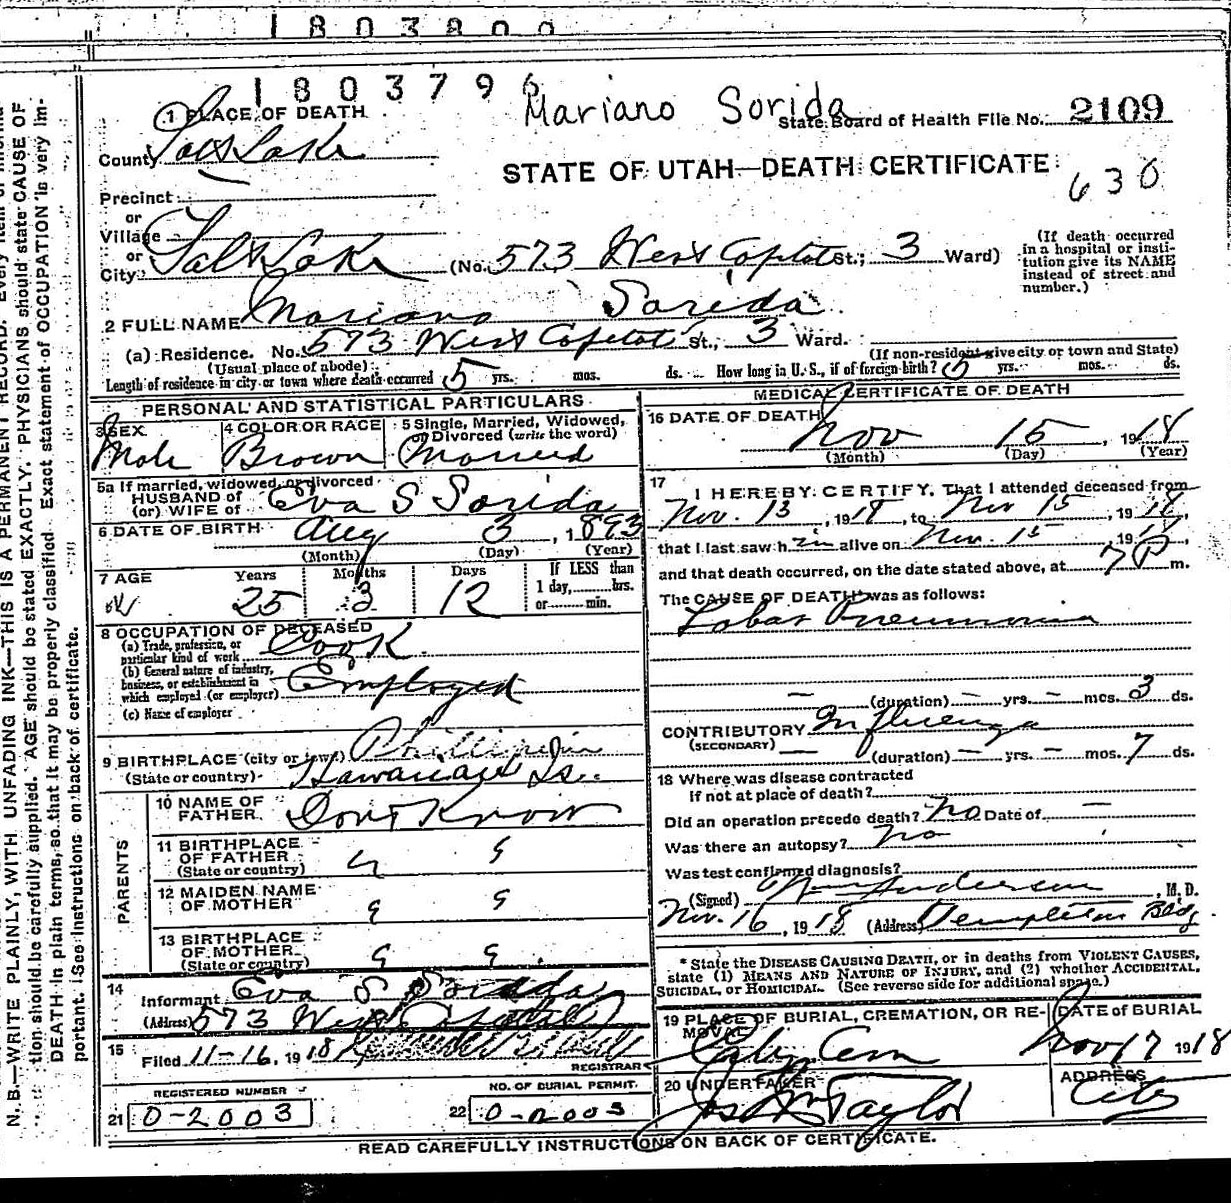 1803800
1803796
Mariano Sorida
1 PLACE OF DEATH
State Board of Health File No. 2109
County Salt Lake
STATE OF UTAH—DEATH CERTIFICATE
630
Precinct
or
Village
or
City Salt Lake (No. 573 West Capitol St.; 3 Ward)
(If death occurred in a hospital or insti-
tution give its NAME
instead of street and
number.)
2 FULL NAME Mariano Sorida
(a) Residence. No. 573 West Capitol St., 3 Ward.
(Usual place of abode) (If non-resident give city or town and State)
Length of residence in city or town where death occurred 5 yrs. mos. ds. How long in U. S., if of foreign birth? 5 yrs. mos. ds.
PERSONAL AND STATISTICAL PARTICULARS
3 SEX
Male
4 COLOR OR RACE
Brown
5 Single, Married, Widowed,
or Divorced (write the word)
Married
5a If married, widowed, or divorced
HUSBAND of
(or) WIFE of Eva S Sorida
6 DATE OF BIRTH Aug 3, 1893
(Month) (Day) (Year)
7 AGE Years Months Days If LESS than
1 day, hrs.
or min.
25 3 12
8 OCCUPATION OF DECEASED
(a) Trade, profession, or
particular kind of work Cook
(b) General nature of industry,
business, or establishment in
which employed (or employer) Employed
(c) Name of employer
9 BIRTHPLACE (city or town)
(State or country) Hawaiian Is.
PARENTS
10 NAME OF
FATHER Dont Know
11 BIRTHPLACE
OF FATHER
(State or country)
12 MAIDEN NAME
OF MOTHER
13 BIRTHPLACE
OF MOTHER
(State or country)
14
Informant Eva S Sorida
(Address) 573 West Capitol
15
Filed 11-16, 1918
REGISTRAR
REGISTERED NUMBER
21 O-2003
NO. OF BURIAL PERMIT.
22 O-2003
MEDICAL CERTIFICATE OF DEATH
16 DATE OF DEATH
Nov 15, 1918
(Month) (Day) (Year)
17
I HEREBY CERTIFY, That I attended deceased from
Nov. 13, 1918, to Nov 15, 1918,
that I last saw him alive on Nov. 15, 1918
and that death occurred, on the date stated above, at 7 P m.
The CAUSE OF DEATH was as follows:
Lobar Pneumonia
(duration) — yrs. — mos. 3 ds.
CONTRIBUTORY Influenza
(SECONDARY) (duration) — yrs. — mos. 7 ds.
18 Where was disease contracted
if not at place of death?
Did an operation precede death? No Date of —
Was there an autopsy? No
Was test confirmed diagnosis?
(Signed) Anderson, M. D.
Nov. 16, 1918 (Address) Templeton Bldg
* State the DISEASE CAUSING DEATH, or in deaths from VIOLENT CAUSES,
state (1) MEANS AND NATURE OF INJURY, and (2) whether ACCIDENTAL,
SUICIDAL, or HOMICIDAL. (See reverse side for additional space.)
19 PLACE OF BURIAL, CREMATION, OR RE-
MOVAL
City Cem
DATE OF BURIAL
Nov 17 1918
20 UNDERTAKER
Jos Wm Taylor
ADDRESS
City
READ CAREFULLY INSTRUCTIONS ON BACK OF CERTIFICATE.
N. B.—WRITE PLAINLY, WITH UNFADING INK—THIS IS A PERMANENT RECORD. Every item of informa-
tion should be carefully supplied. AGE should be stated EXACTLY. PHYSICIANS should state CAUSE OF
DEATH in plain terms, so that it may be properly classified. Exact statement of OCCUPATION is very im-
portant. See Instructions on back of certificate.